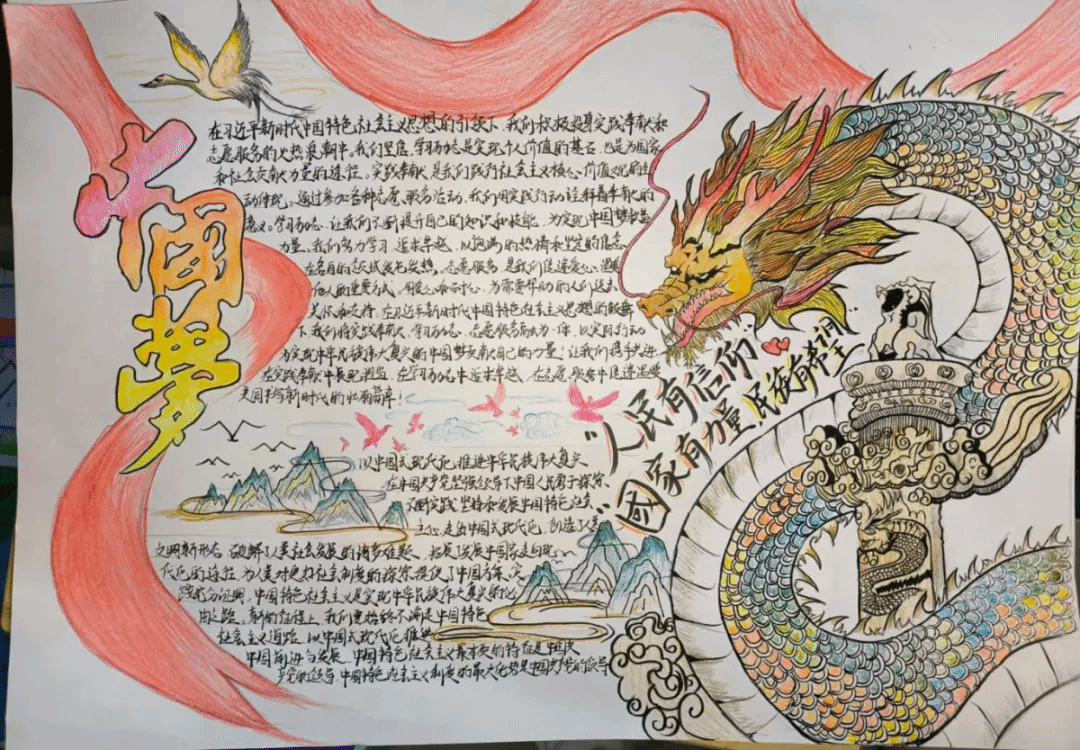 中國夢
在习近平新时代中国特色社会主义思想的引领下,我们积极投身实践奉献和
志愿服务的火热浪潮中。我们坚信,学习励志是实现个人价值的基石,也是为国家
和社会贡献力量的途径。实践奉献是我们践行社会主义核心价值观的生
动体现。通过参加各种志愿服务活动,我们用实践行动诠释着奉献的
意义。学习励志,让我们不断提升自己的知识和技能,为实现中国梦积蓄
力量。我们努力学习,追求卓越,以饱满的热情和坚定的信念
在各自的领域发光发热。志愿服务,是我们传递爱心、温暖
他人的重要方式,用爱心和耐心,为需要帮助的人们送去
关怀和支持。在习近平新时代中国特色社会主义思想的鼓舞
下,我们将实践奉献、学习励志、志愿服务融为一体,以实际行动
为实现中华民族伟大复兴的中国梦贡献自己的力量!让我们携手共进
在实践奉献中展现担当,在学习励志中追求卓越,在志愿服务中传递温暖
共同书写新时代的壮丽篇章!
"人民有信仰"
"國家有力量,民族有希望"
以中国式现代化推进中华民族伟大复兴
在中国共产党坚强领导下,中国人民勇于探索、
不断实践,坚持和发展中国特色社会
主义,走出中国式现代化,创造了人类
文明新形态,破解了人类社会发展的诸多难题,拓展了发展中国家走向现
代化的途径,为人类对更好社会制度的探索提供了中国方案。实
践充分证明,中国特色社会主义是实现中华民族伟大复兴的必
由之路。新的征程上,我们要始终不渝走中国特色
社会主义道路,以中国式现代化推进
中国前进与发展。中国特色社会主义最本质的特征是中国共
产党的领导,中国特色社会主义制度的最大优势是中国共产党的领导